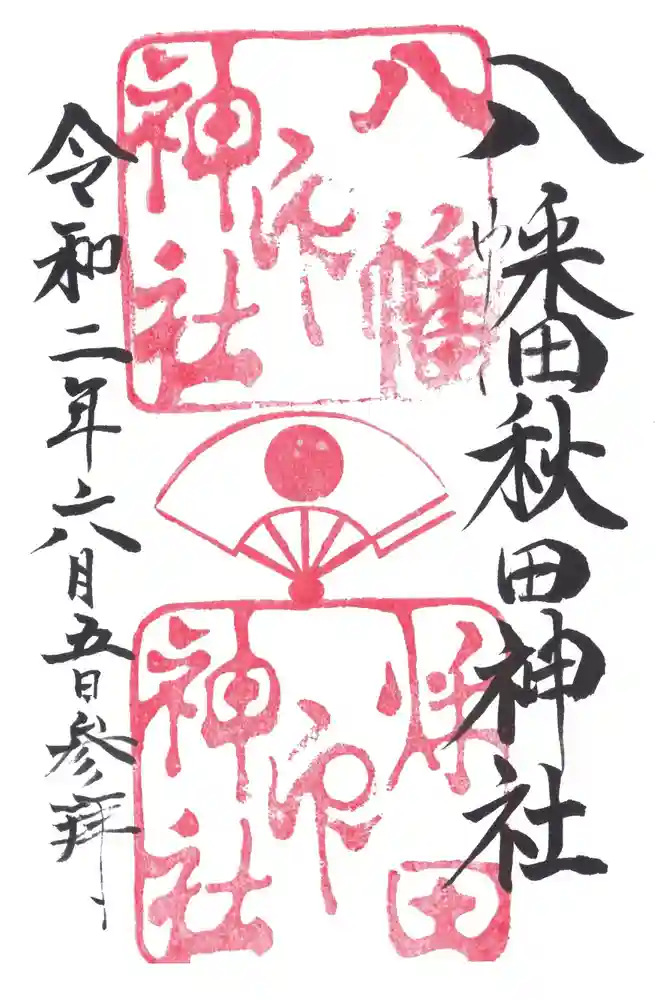 八幡秋田神社
八幡
神社
印
秌田
神社
印
令和二年六月五日参拝